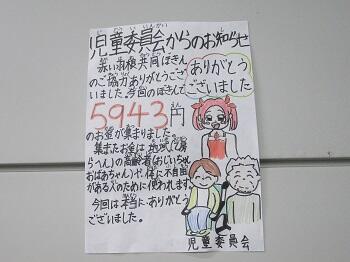 児童委員会からのお知らせ
赤い羽根共同ぼきん
のご協力ありがとうござ
いました。今回のぼきんで
5943円
のお金が集まりました。
集まったお金は地域(浦
らへん)の高齢者(おじいちゃん
おばあちゃん)や、体に不自由
がある人のために使われます。
今回は本当に、ありがとう
ございました。
ありがとう
ございました
児童委員会